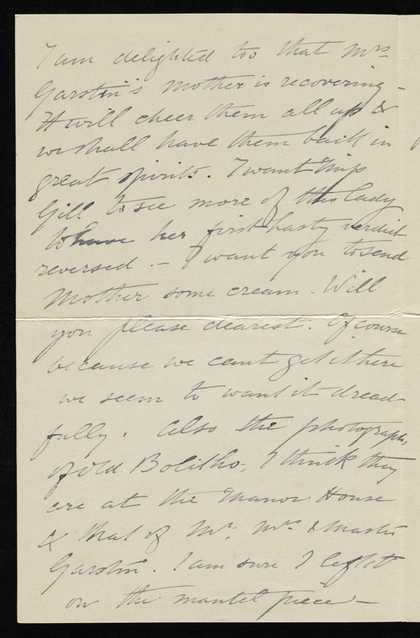 I am delighted too that Mrs
Garstin's Mother is recovering -
It will cheer them all up &
we shall have them back in
great spirits. I want Miss
Gill to see more of this lady
to have her first hasty verdict
reversed. - I want you to send
Mother some cream. Will
you please dearest. Of course
because we cant get it here
we seem to want it dread
fully. Also the photographs
of old Bolitho. I think they
are at the Manor House
& that of Mr. Mrs & Master
Garstin. I am sure I left it
on the mantel piece -